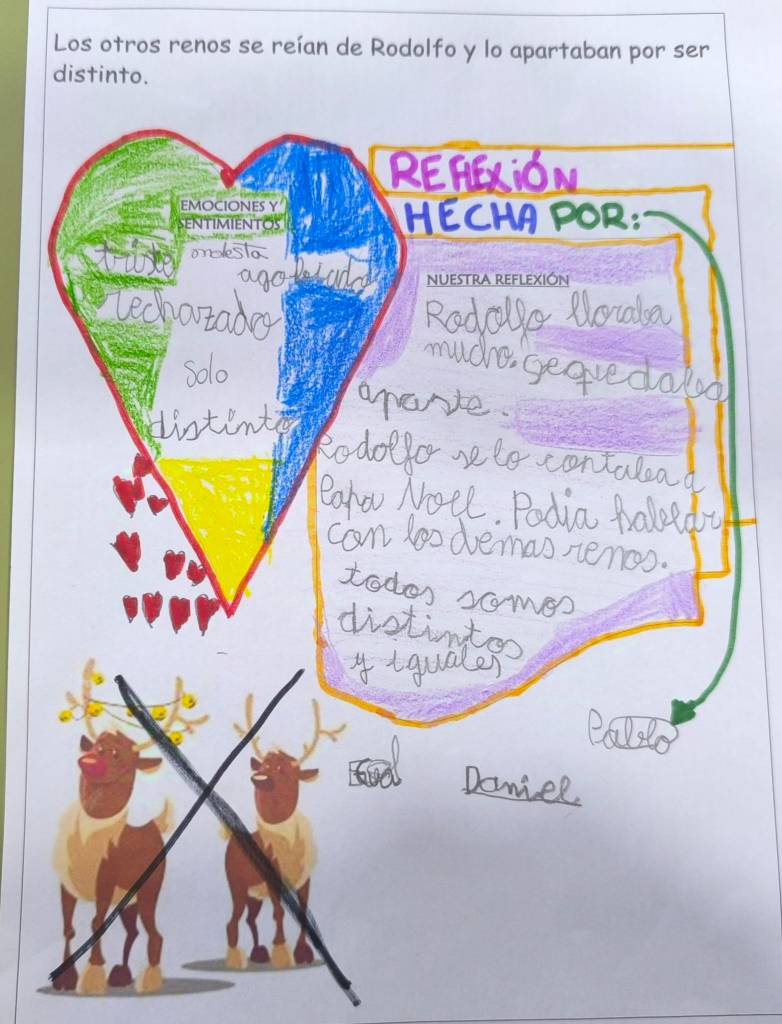 Los otros renos se reían de Rodolfo y lo apartaban por ser
distinto.
EMOCIONES Y
SENTIMIENTOS
triste molesta
agobiado
rechazado
solo
distinto
REFLEXIÓN
HECHA POR:
NUESTRA REFLEXIÓN
Rodolfo lloraba
mucho. sequedaba
aparte.
Rodolfo se lo contaba a
Papa Noel. Podia hablar
con los demas renos.
todos somos
distintos
y iguales
Pablo
Daniel